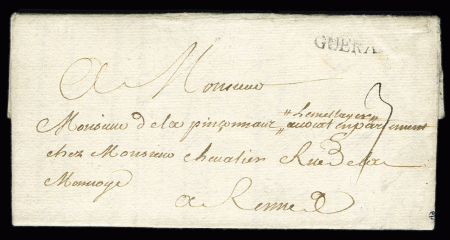 GUERA
A Monsieur
Monsieur de la pinçonnaux
avocat en parlement
chez Monsieur chevalier Rue de la
Monnoye
a Rennes